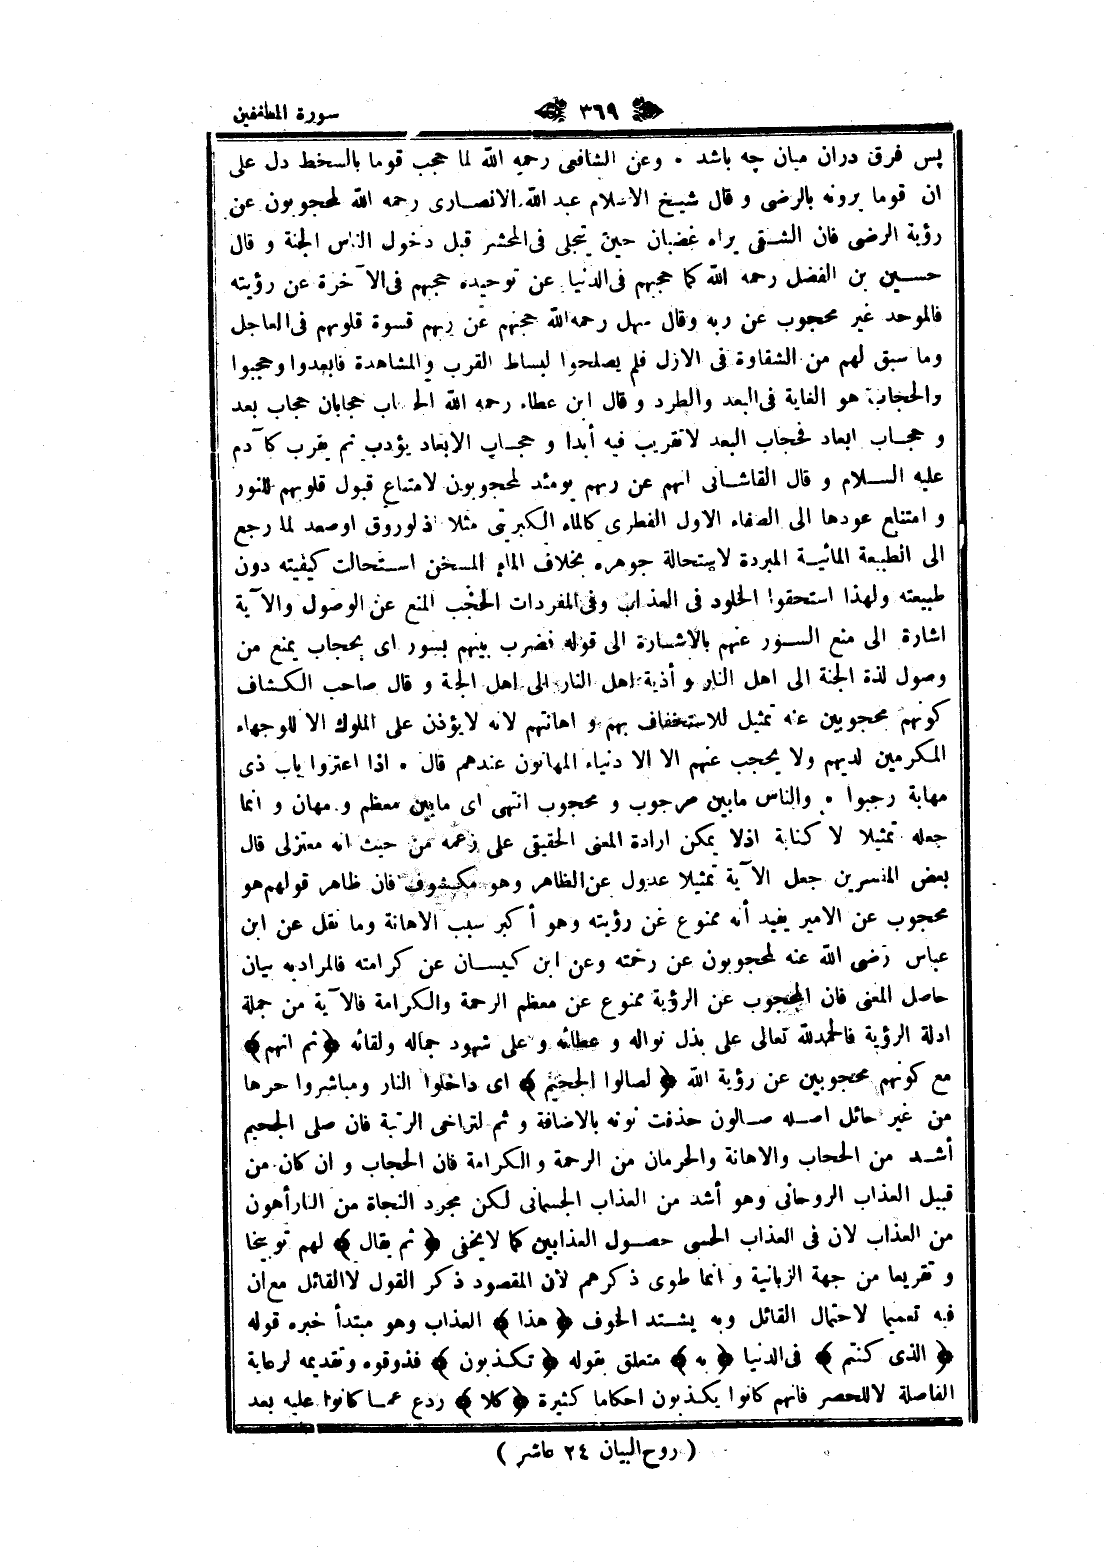 سورة المطففين
٣٦٩
پس فرق دران ميان چه باشد . وعن الشافعى رحمه الله لما حجب قوما بالسخط دل على
ان قوما يرونه بالرضى و قال شيخ الاسلام عبد الله الانصارى رحمه الله لمحجوبون عن
رؤية الرضى فان الشقى يراه غضبان حين يتجلى فى المحشر قبل دخول الناس الجنة و قال
حسين بن الفضل رحمه الله كما حجبهم فى الدنيا عن توحيده حجبهم فى الآخرة عن رؤيته
فالموحد غير محجوب عن ربه وقال سهل رحمه الله حجبهم عن ربهم قسوة قلوبهم فى العاجل
وما سبق لهم من الشقاوة فى الازل فلم يصلحوا لبساط القرب والمشاهدة فابعدوا وحجبوا
والحجاب هو الغاية فى البعد والطرد و قال ابن عطاء رحمه الله الحجاب حجابان حجاب بعد
و حجاب ابعاد فحجاب البعد لاتقريب فيه أبدا و حجاب الابعاد يؤدب ثم يقرب كآدم
عليه السلام و قال القاشانى انهم عن ربهم يومئذ لمحجوبون لامتناع قبول قلوبهم للنور
و امتناع عودها الى الصفاء الاول الفطرى كالماء الكبريتى مثلا اذلوروق اوصعد لما رجع
الى الطبيعة المائية المبردة لاستحالة جوهره بخلاف الماء المسخن استحالت كيفيته دون
طبيعته ولهذا استحقوا الخلود فى العذاب وفى المفردات الحجب المنع عن الوصول والآية
اشارة الى منع السور عنهم بالاشارة الى قوله فضرب بينهم بسور اى بحجاب يمنع من
وصول لذة الجنة الى اهل النار و أذية اهل النار الى اهل الجنة و قال صاحب الكشاف
كونهم محجوبين عنه تمثيل للاستخفاف بهم و اهانتهم لانه لايؤذن على الملوك الا للوجهاء
المكرمين لديهم ولا يحجب عنهم الا الا دنياء المهانون عندهم قال . اذا اعتزوا باب ذى
مهابة رجبوا . والناس مابين مرجوب و محجوب انتهى اى مابين معظم و مهان و انما
جعله تمثيلا لا كناية اذلا يمكن ارادة المعنى الحقيقى على زعمه من حيث انه معتزلى قال
بعض المفسرين جعل الآية تمثيلا عدول عن الظاهر وهو مكشوف فان ظاهر قولهم هو
محجوب عن الامير يفيد أنه ممنوع عن رؤيته وهو أكبر سبب الاهانة وما نقل عن ابن
عباس رضى الله عنه لمحجوبون عن رحمته وعن ابن كيسان عن كرامته فالمراد به بيان
حاصل المعنى فان المحجوب عن الرؤية ممنوع عن معظم الرحمة والكرامة فالآية من جملة
ادلة الرؤية فالحمدلله تعالى على بذل نواله و عطائه و على شهود جماله ولقائه ﴿ ثم انهم ﴾
مع كونهم محجوبين عن رؤية الله ﴿ لصالوا الجحيم ﴾ اى داخلوا النار ومباشروا حرها
من غير حائل اصله صالون حذفت نونه بالاضافة و ثم لتراخى الرتبة فان صلى الجحيم
أشد من الحجاب والاهانة والحرمان من الرحمة والكرامة فان الحجاب و ان كان من
قبيل العذاب الروحانى وهو أشد من العذاب الجسمانى لكن مجرد النجاة من النار أهون
من العذاب لان فى العذاب الحسى حصول العذابين كما لايخفى ﴿ ثم يقال ﴾ لهم توبيخا
و تقريعا من جهة الزبانية و انما طوى ذكرهم لأن المقصود ذكر القول لاالقائل مع ان
فيه تعميما لاحتمال القائل وبه يشتد الخوف ﴿ هذا ﴾ العذاب وهو مبتدأ خبره قوله
﴿ الذى كنتم ﴾ فى الدنيا ﴿ به ﴾ متعلق بقوله ﴿ تكذبون ﴾ فذوقوه وتقديمه لرعاية
الفاصلة لاللحصر فانهم كانوا يكذبون احكاما كثيرة ﴿ كلا ﴾ ردع عما كانوا عليه بعد
( روح البيان ٢٤ عاشر )